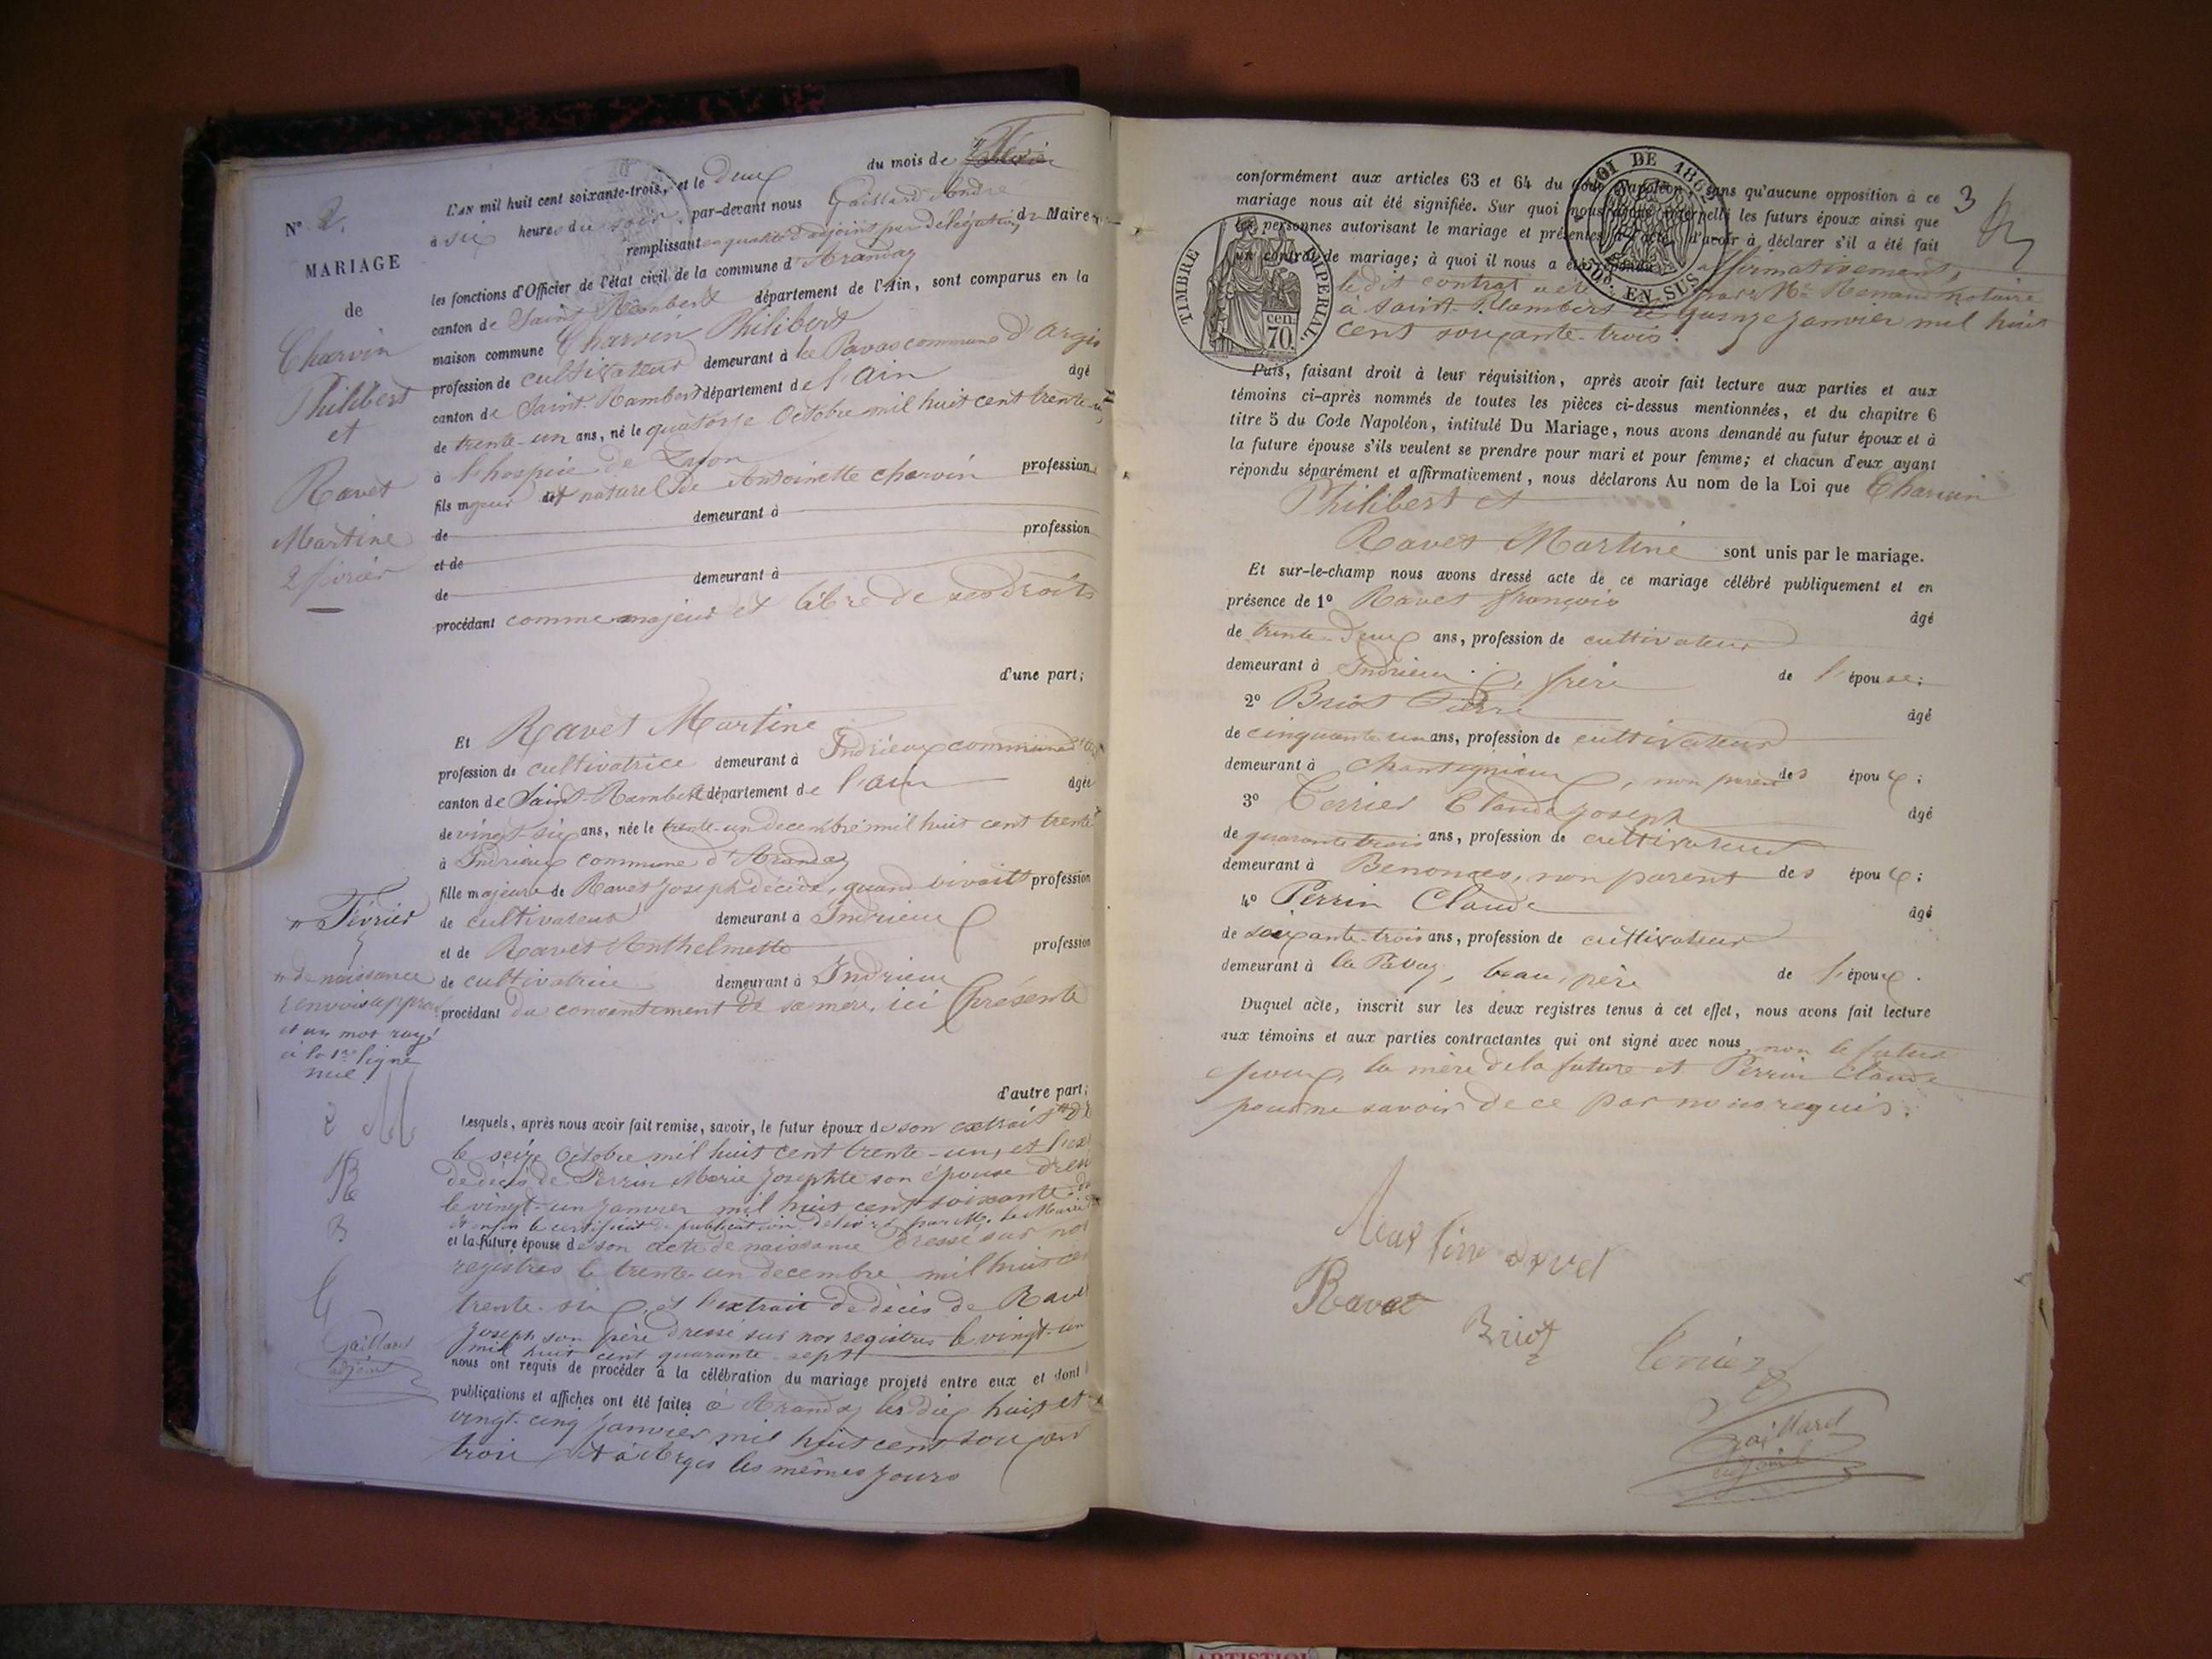 L'AN mil huit cent soixante-trois, et le deux du mois de
à six heures du soir par-devant nous Gaillard André
remplissant en qualité d'adjoint par délégation du Maire
les fonctions d'Officier de l'état civil de la commune d'Aranday
canton de Saint Rambert département de l'Ain, sont comparus en la
maison commune Charvin Philibert
profession de cultivateur demeurant à la Pavas commune d'Argis
canton de Saint-Rambert département de l'Ain âgé
de trente-un ans, né le quatorze Octobre mil huit cent trente-un
à l'hospice de Lyon
fils majeur et naturel de Antoinette Charvin profession
de demeurant à
et de profession
de demeurant à
procédant comme majeur et libre de ses droits
d'une part;
Et Ravet Martine
profession de cultivatrice demeurant à Indrieux commune
canton de Saint-Rambert département de l'ain âgée
de vingt-six ans, née le trente-un decembre mil huit cent trente
à Indrieux commune d'Aranday
fille majeure de Ravet Joseph décédé, quand vivait profession
de cultivateur demeurant à Indrieux
et de Ravet Anthelmette profession
de cultivatrice demeurant à Indrieux
procédant du consentement de sa mère, ici présente
d'autre part;
Lesquels, après nous avoir fait remise, savoir, le futur époux de son extrait
le seize Octobre mil huit cent trente-un, et l'ex
de décès de Perrin Marie Josephte son épouse dres
le vingt-un janvier mil huit cent soixante
et enfin le certificat de publication délivré par M. le Maire
et la future épouse de son acte de naissance dressé sur nos
registres le trente-un decembre mil huit cen
trente-six, et l'extrait de décès de Ravet
Joseph son père dressé sur nos registres le vingt-un
mil huit cent quarante-sept
nous ont requis de procéder à la célébration du mariage projeté entre eux et dont
publications et affiches ont été faites à Aranday les dix huit et
vingt-cinq janvier mil huit cent soixan
trois et à Argis les mêmes jours
N° 2.
MARIAGE
de
Charvin
Philibert
et
Ravet
Martine
2 février
Février
de naissance
renvois appro
et un mot rayé
à la 1re ligne
nul
Gaillard
adjoint
3
conformément aux articles 63 et 64 du Code Napoléon, sans qu'aucune opposition à ce
mariage nous ait été signifiée. Sur quoi nous avons interpellé les futurs époux ainsi que
les personnes autorisant le mariage et présentes à l'acte, d'avoir à déclarer s'il a été fait
un contrat de mariage; à quoi il nous a été répondu affirmativement,
le dit contrat a été par Me Renaud notaire
à Saint-Rambert le quinze janvier mil huit
cent soixante-trois.
TIMBRE IMPERIAL
70 cen.
LOI DE 1862
EN SUS
Puis, faisant droit à leur réquisition, après avoir fait lecture aux parties et aux
témoins ci-après nommés de toutes les pièces ci-dessus mentionnées, et du chapitre 6
titre 5 du Code Napoléon, intitulé Du Mariage, nous avons demandé au futur époux et à
la future épouse s'ils veulent se prendre pour mari et pour femme; et chacun d'eux ayant
répondu séparément et affirmativement, nous déclarons Au nom de la Loi que Charvin
Philibert et
Ravet Martine sont unis par le mariage.
Et sur-le-champ nous avons dressé acte de ce mariage célébré publiquement et en
présence de 1° Ravet françois âgé
de trente-deux ans, profession de cultivateur
demeurant à Indrieux, frère de l'épouse;
2° Briot Pierre âgé
de cinquante un ans, profession de cultivateur
demeurant à, non parent des époux;
3° Claude Joseph âgé
de quarante trois ans, profession de cultivateur
demeurant à Benonces, non parent des époux;
4° Perrin Claude âgé
de soixante-trois ans, profession de cultivateur
demeurant à la Pavaz, beau-père de l'époux.
Duquel acte, inscrit sur les deux registres tenus à cet effet, nous avons fait lecture
aux témoins et aux parties contractantes qui ont signé avec nous, non le futur
époux, la mère de la future et Perrin Claude
pour ne savoir de ce par nous requis.
Martine ravet
Ravet
Briot
Gaillard
adjoint